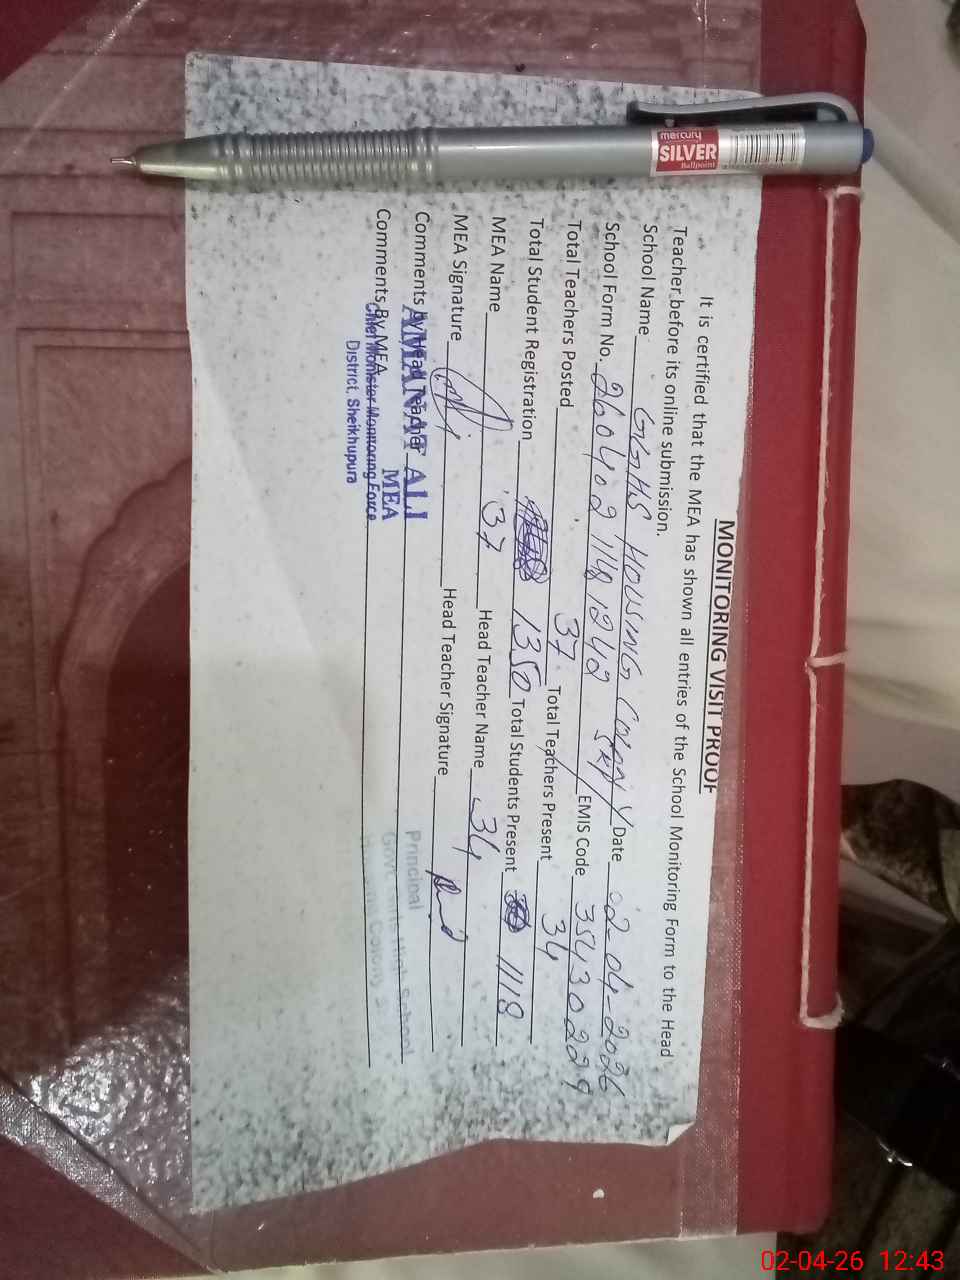 mercury
SILVER
Ballpoint
MONITORING VISIT PROOF
It is certified that the MEA has shown all entries of the School Monitoring Form to the Head
Teacher before its online submission.
School Name GGHS HOUSING COLONY SKP Date 02-04-2026
School Form No. 2604021181242 EMIS Code 35430229
Total Teachers Posted 37 Total Teachers Present 34
Total Student Registration 1350 Total Students Present 1118
MEA Name 37 Head Teacher Name 34
MEA Signature Head Teacher Signature
Comments by Head Teacher
Comments By MEA
AMANAT ALI
MEA
Chief Minister Monitoring Force
District, Sheikhupura
Principal
Govt. Girls High School
Housing Colony
02-04-26 12:43